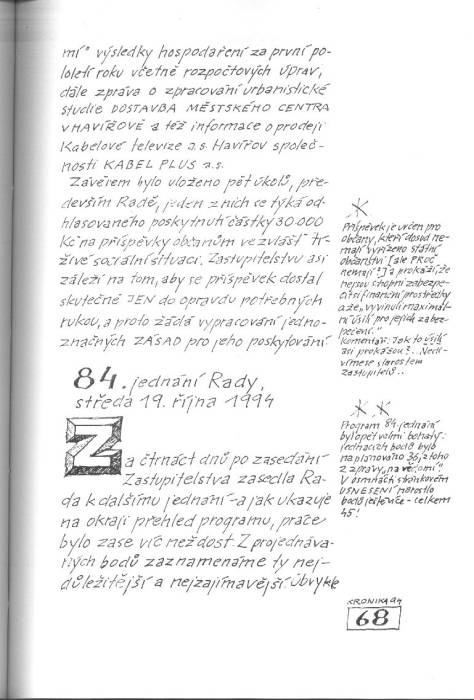 mí" výsledky hospodaření za první po-
loletí roku včetně rozpočtových úprav,
dále zpráva o zpracování urbanistické
studie DOSTAVBA MĚSTSKÉHO CENTRA
V HAVÍŘOVĚ a též informace o prodeji
Kabelové televize a.s. Havířov společ-
nosti KABEL PLUS a.s.
Závěrem bylo uloženo pět úkolů, pře-
devším Radě, jeden z nich se týká od-
hlasovaného poskytnutí částky 30.000
Kč na příspěvky občanům ve zvlášť tí-
živé sociální situaci. Zastupitelstvu asi
záleží na tom, aby se příspěvek dostal
skutečně JEN do opravdu potřebných
rukou, a proto žádá vypracování jedno-
značných ZÁSAD pro jeho poskytování
Příspěvek je určen pro
občany, kteří dosud ne-
mají vyřízeno státní
občanství (ale PROČ
nemají?) a prokáží, že
nejsou schopni zabezpe-
čit si finanční prostředky
a že „vyvinuli maximál-
ní úsilí pro jejich zabez-
pečení."
Komentář: Jak to úsilí
asi prokážou?... Nedi-
víme se starostem
zastupitelů...
84. jednání Rady,
středa 19. října 1994
Za čtrnáct dnů po zasedání
Zastupitelstva zasedla Ra-
da k dalšímu jednání - a jak ukazuje
na okraji přehled programu, práce
bylo zase víc než dost. Z projednáva-
ných bodů zaznamenáme ty nej-
důležitější a nejzajímavější. Obvykle
Program 84. jednání
byl opět velmi bohatý:
jednacích bodů bylo
naplánováno 36, z toho
2 zprávy „na vědomí"
V osmnácti stránkovém
USNESENÍ narostlo
bodů ještě více - celkem
45!
KRONIKA 94
68